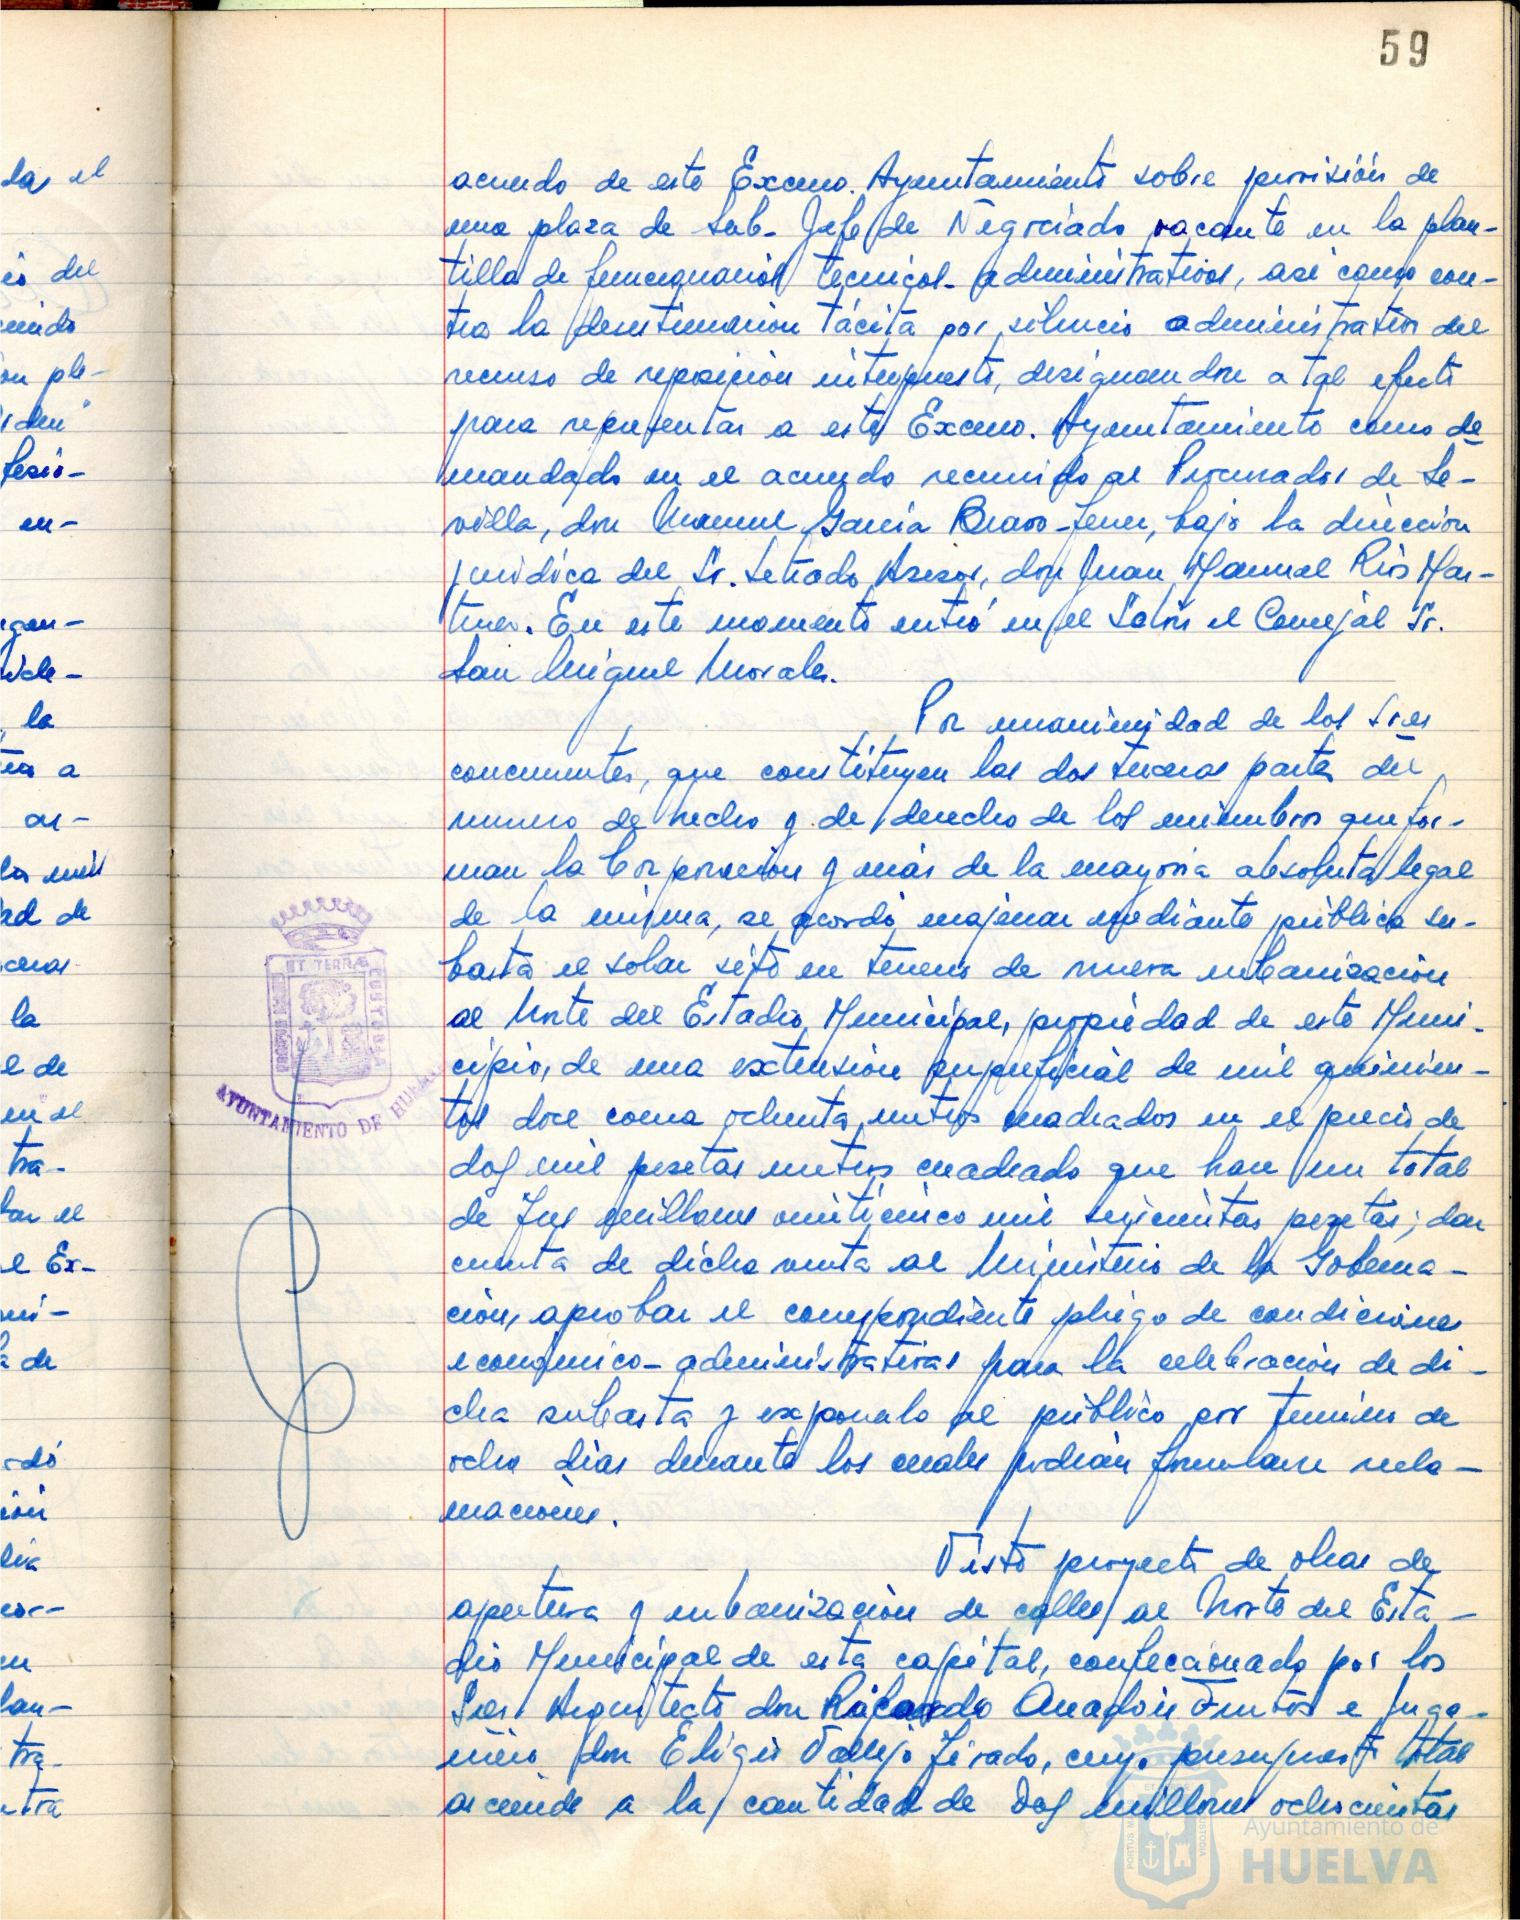 59
acuerdo de este Excmo. Ayuntamiento sobre provisión de
una plaza de Sub-Jefe de Negociado vacante en la plan-
tilla de funcionarios técnicos-administrativos, así como con-
tra la desestimación tácita por silencio administrativo del
recurso de reposición interpuesto, designandose a tal efecto
para representar a este Excmo. Ayuntamiento como de
mandado en el acuerdo recurrido al Procurador de Se-
villa, don Manuel García Bravo-Ferrer, bajo la dirección
juridica del Sr. Letrado Asesor, don Juan Manuel Rios Mar-
tinez. En este momento entró en el Salón el Concejal Sr.
San Miguel Morales.
Por unanimidad de los Sres
concurrentes, que constituyen las dos terceras partes del
número de hecho y de derecho de los miembros que for-
man la Corporación y más de la mayoría absoluta legal
de la misma, se acordó enajenar mediante pública su-
basta el solar sito en terrenos de nueva urbanización
al Norte del Estadio Municipal, propiedad de este Muni-
cipio, de una extensión superficial de mil quinien-
tos doce coma ochenta metros cuadrados en el precio de
dos mil pesetas metros cuadrado que hace un total
de tres millones veinticinco mil seiscientas pesetas; dar
cuenta de dicha venta al Ministerio de la Goberna-
ción, aprobar el correspondiente pliego de condiciones
economico-administrativas para la celebración de di-
cha subasta y exponerlo al público por termino de
ocho días durante los cuales podrán formularse recla-
maciones.
Visto proyecto de obras de
apertura y urbanización de calles al Norte del Esta-
dio Municipal de esta capital, confeccionado por los
Sres. Arquitecto don Ricardo Anadón Frutos e Inge-
niero don Eligio Vallejo Tirado, cuyo presupuesto total
asciende a la cantidad de dos millones ochocientas
ET TERRÆ
CUSTODIA
AYUNTAMIENTO DE HUELVA
Ayuntamiento de
HUELVA
da, el
es del
on ple-
en-
la
a
ar-
ad de
la
e de
en el
tra-
ar el
el Ex-
a de
cor-
tra-